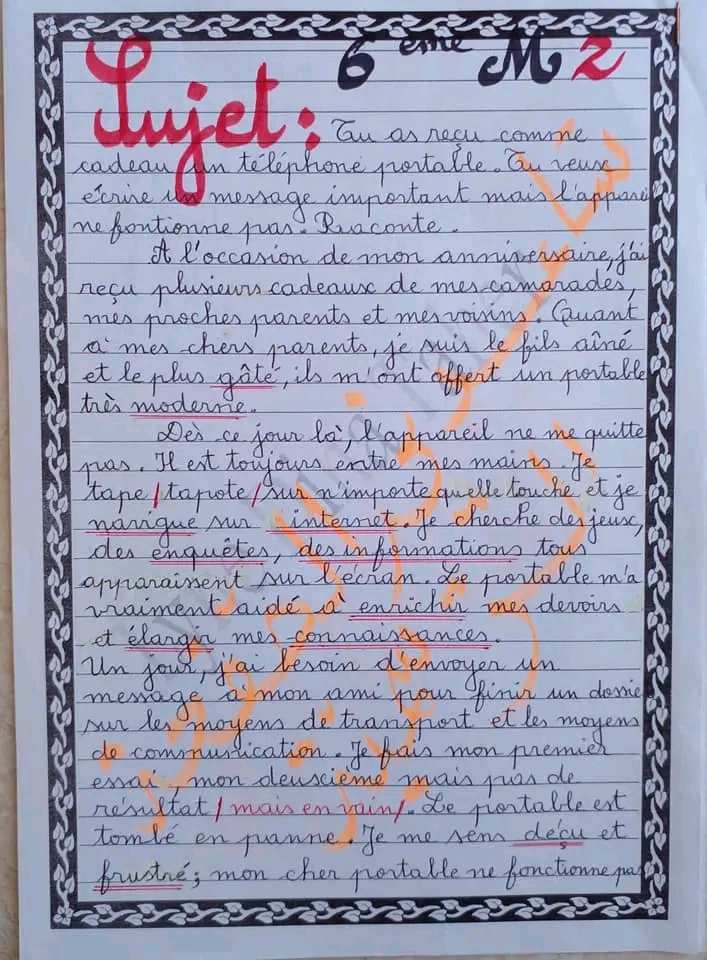 6 ème M2
Sujet : Tu as reçu comme
cadeau un téléphone portable. Tu veux
écrire un message important mais l'appareil
ne fontionne pas. Raconte.
A l'occasion de mon anniversaire, j'ai
reçu plusieurs cadeaux de mes camarades,
mes proches parents et mes voisins. Quant
à mes chers parents, je suis le fils aîné
et le plus gâté, ils m'ont offert un portable
très moderne.
Dès ce jour là, l'appareil ne me quitte
pas. Il est toujours entre mes mains. Je
tape / tapote / sur n'importe quelle touche et je
navigue sur internet. Je cherche des jeux,
des enquêtes, des informations tous
apparaissent sur l'écran. Le portable m'a
vraiment aidé à enrichir mes devoirs
et élargir mes connaissances.
Un jour, j'ai besoin d'envoyer un
message à mon ami pour finir un dossie
sur les moyens de transport et les moyens
de communication. Je fais mon premier
essai, mon deuxième mais pas de
résultat / mais en vain /. Le portable est
tombé en panne. Je me sens déçu et
frustré ; mon cher portable ne fonctionne pas